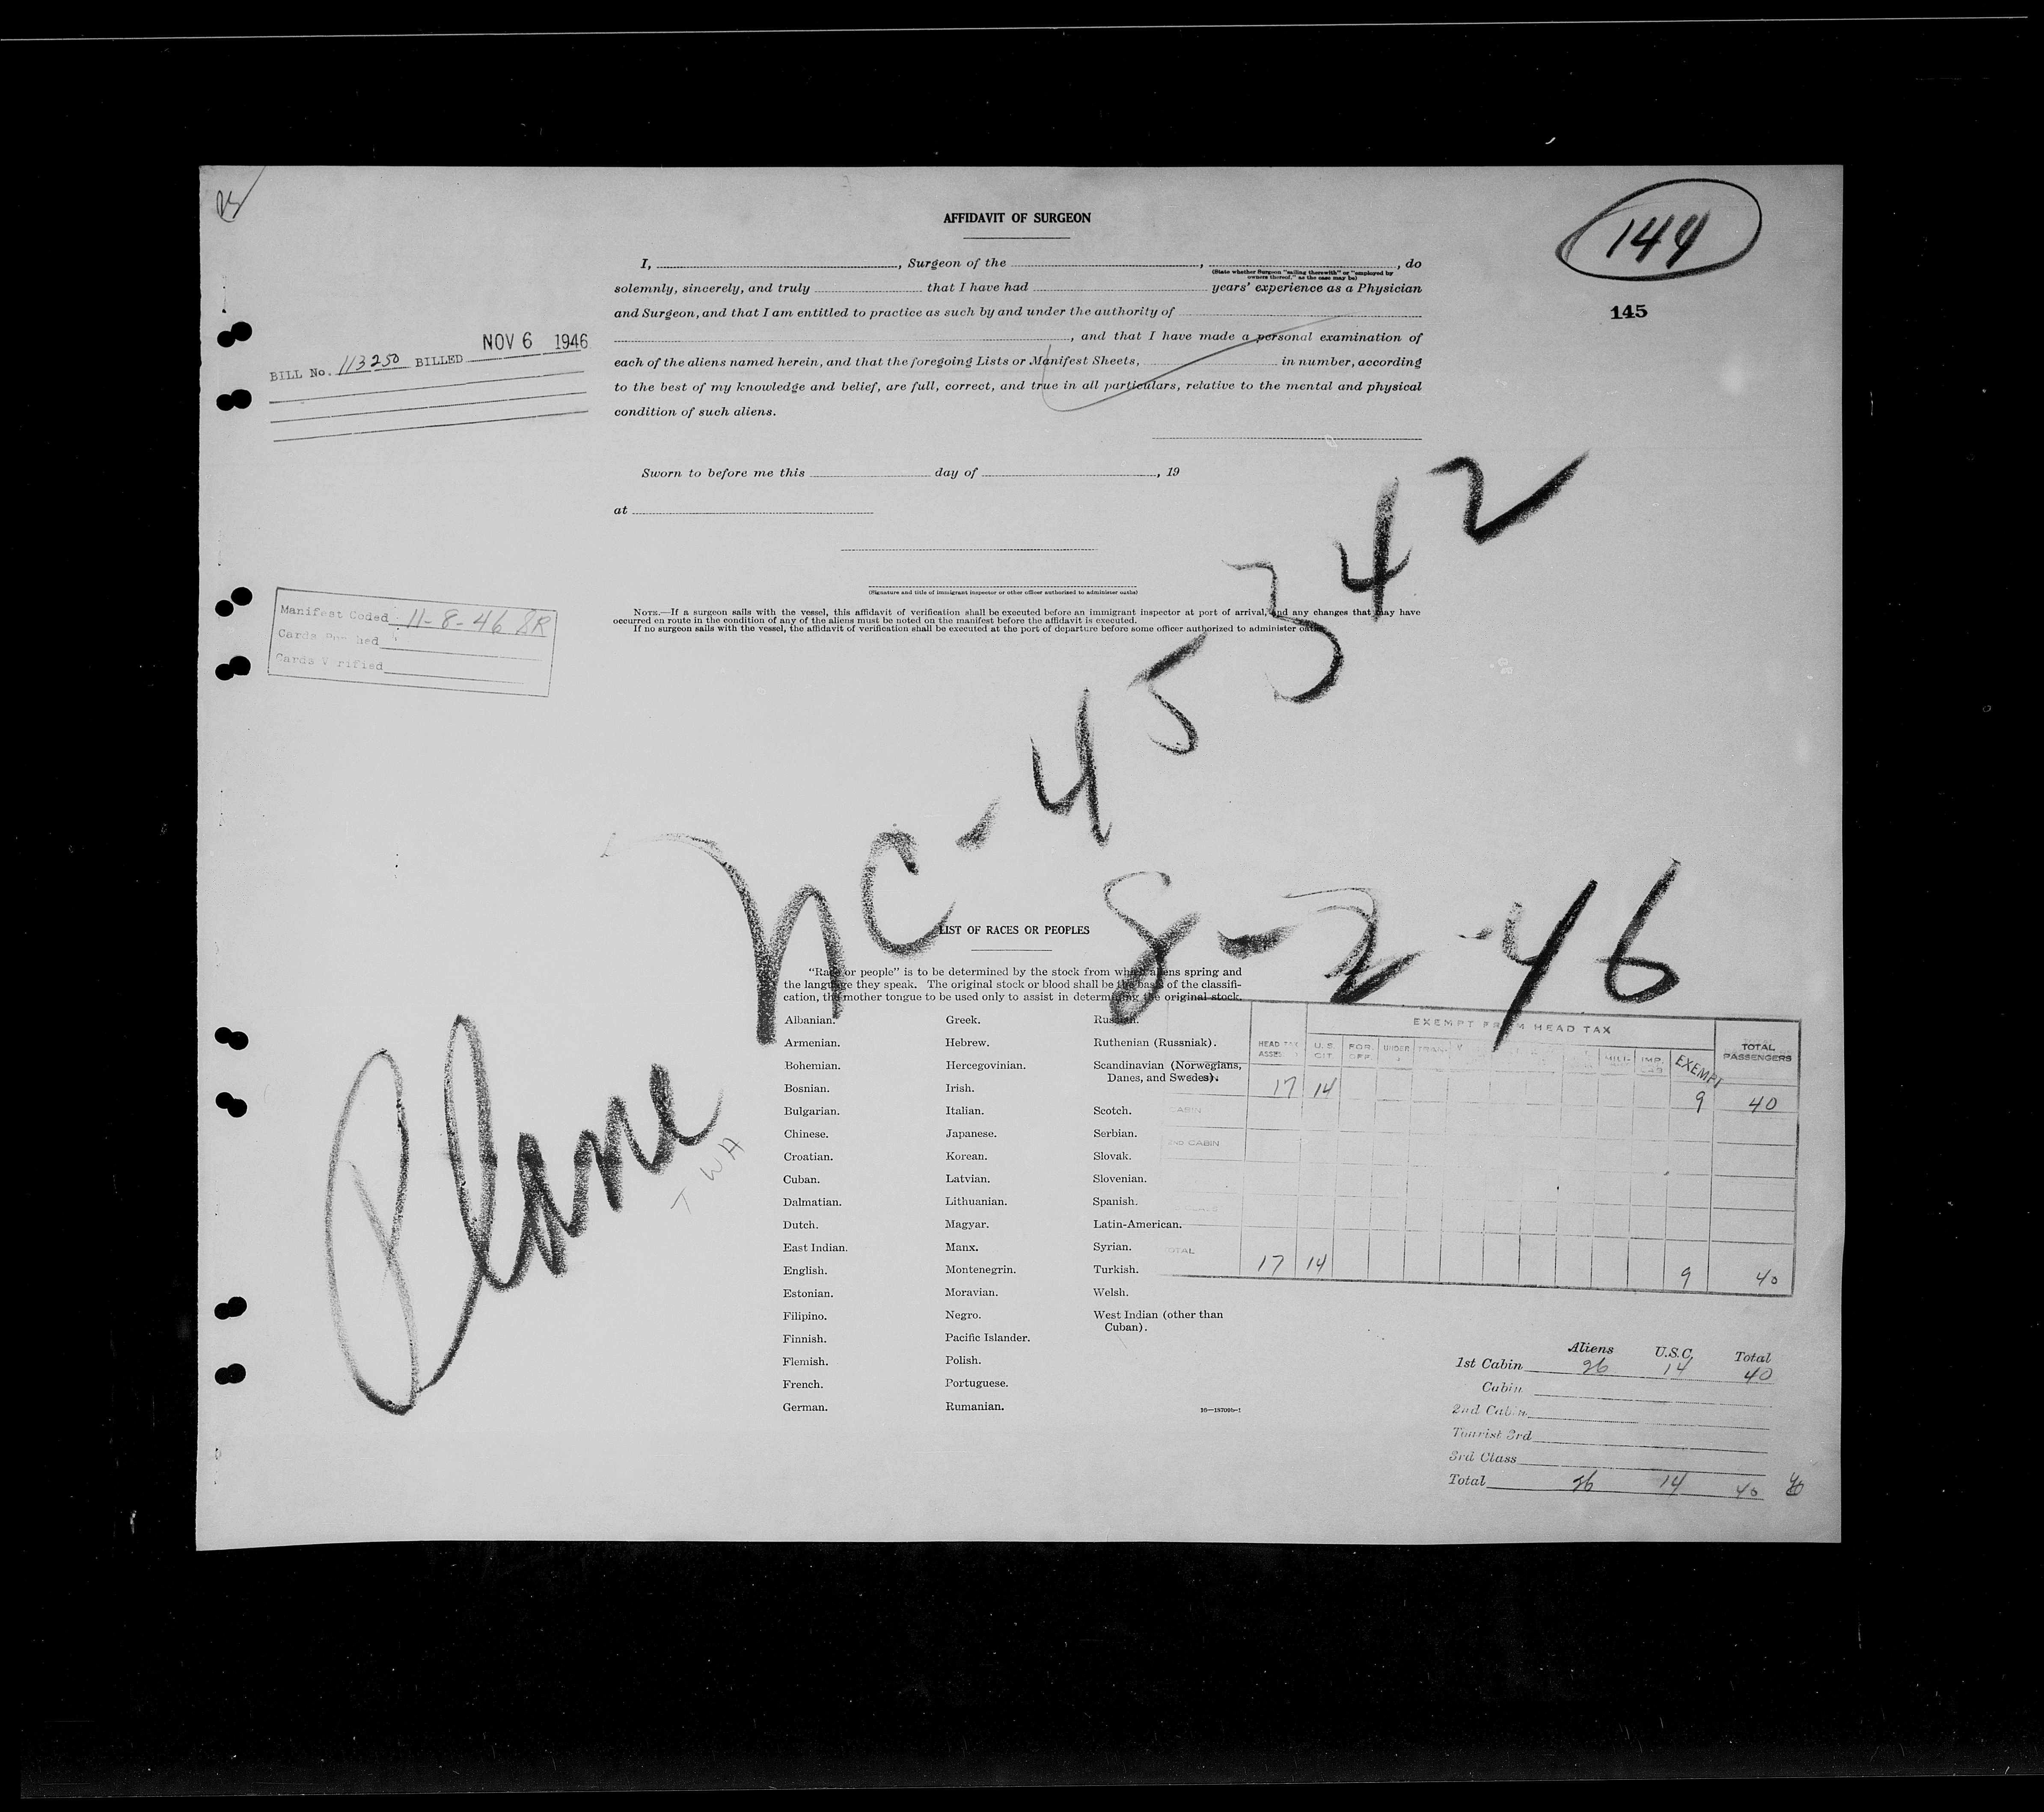 AFFIDAVIT OF SURGEON
144
145
I, , Surgeon of the , , do
(State whether Surgeon "sailing therewith" or "employed by
owners thereof," as the case may be)
solemnly, sincerely, and truly that I have had years' experience as a Physician
and Surgeon, and that I am entitled to practice as such by and under the authority of
, and that I have made a personal examination of
each of the aliens named herein, and that the foregoing Lists or Manifest Sheets, in number, according
to the best of my knowledge and belief, are full, correct, and true in all particulars, relative to the mental and physical
condition of such aliens.
BILL No. 113250 BILLED NOV 6 1946
Sworn to before me this day of , 19
at
(Signature and title of immigrant inspector or other officer authorized to administer oaths)
NOTE.—If a surgeon sails with the vessel, this affidavit of verification shall be executed before an immigrant inspector at port of arrival, and any changes that may have
occurred en route in the condition of any of the aliens must be noted on the manifest before the affidavit is executed.
If no surgeon sails with the vessel, the affidavit of verification shall be executed at the port of departure before some officer authorized to administer oaths.
Manifest Coded 11-8-46 SR
Cards Punched
Cards Verified
Plane NC-45342
8-2-46
TWA
LIST OF RACES OR PEOPLES
"Race or people" is to be determined by the stock from which aliens spring and
the language they speak. The original stock or blood shall be the basis of the classifi-
cation, the mother tongue to be used only to assist in determining the original stock.
Albanian.
Armenian.
Bohemian.
Bosnian.
Bulgarian.
Chinese.
Croatian.
Cuban.
Dalmatian.
Dutch.
East Indian.
English.
Estonian.
Filipino.
Finnish.
Flemish.
French.
German.
Greek.
Hebrew.
Hercegovinian.
Irish.
Italian.
Japanese.
Korean.
Latvian.
Lithuanian.
Magyar.
Manx.
Montenegrin.
Moravian.
Negro.
Pacific Islander.
Polish.
Portuguese.
Rumanian.
Russian.
Ruthenian (Russniak).
Scandinavian (Norwegians,
Danes, and Swedes).
Scotch.
Serbian.
Slovak.
Slovenian.
Spanish.
Latin-American.
Syrian.
Turkish.
Welsh.
West Indian (other than
Cuban).
16—18709b-1
EXEMPT FROM HEAD TAX
HEAD TAX ASSESSED U.S. CIT FOR. OFF. UNDER TRAN- MILI- IMP. EXEMPT TOTAL PASSENGERS
17 14 9 40
CABIN
2ND CABIN
TOTAL 17 14 9 40
Aliens U.S.C. Total
1st Cabin 26 14 40
Cabin
2nd Cabin
Tourist 3rd
3rd Class
Total 26 14 40 40